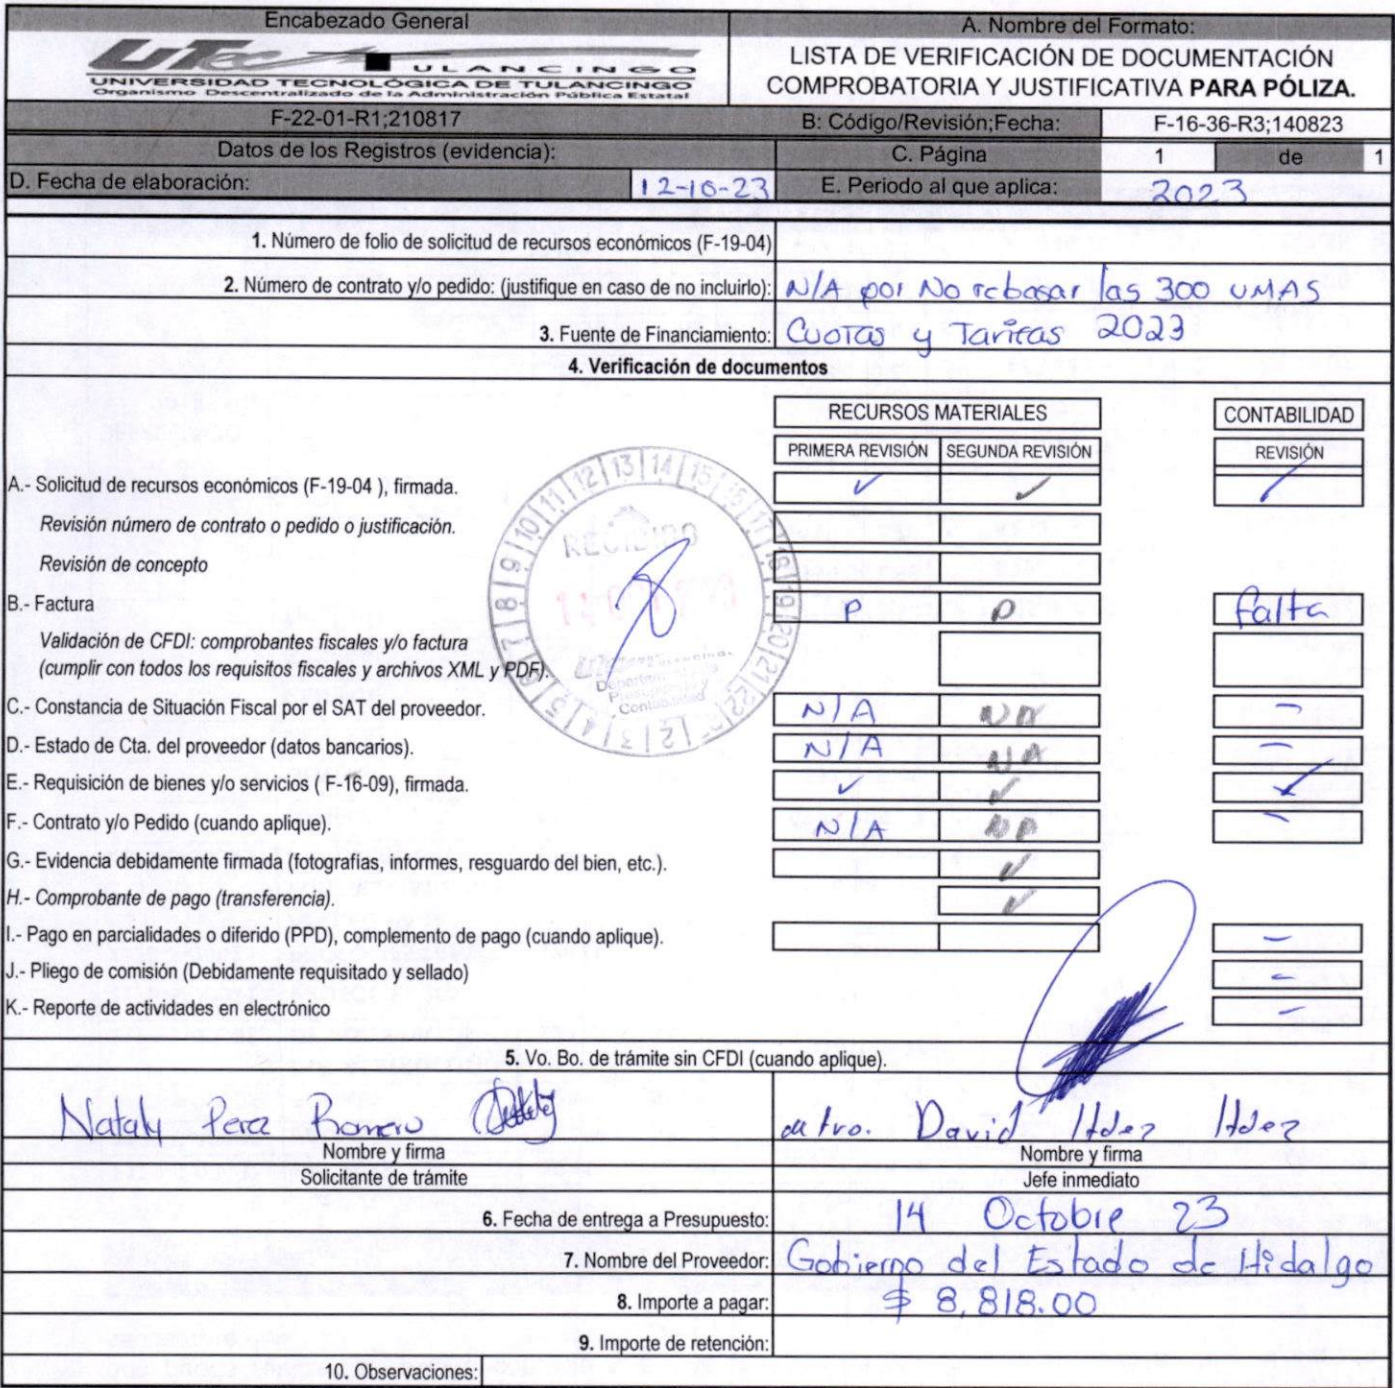 Encabezado General
A. Nombre del Formato:
UTec TULANCINGO
UNIVERSIDAD TECNOLÓGICA DE TULANCINGO
Organismo Descentralizado de la Administración Pública Estatal
LISTA DE VERIFICACIÓN DE DOCUMENTACIÓN
COMPROBATORIA Y JUSTIFICATIVA PARA PÓLIZA.
F-22-01-R1;210817
B: Código/Revisión;Fecha: F-16-36-R3;140823
Datos de los Registros (evidencia):
C. Página 1 de 1
D. Fecha de elaboración: 12-10-23
E. Periodo al que aplica: 2023
1. Número de folio de solicitud de recursos económicos (F-19-04)
2. Número de contrato y/o pedido: (justifique en caso de no incluirlo): N/A por No rebasar las 300 UMAS
3. Fuente de Financiamiento: Cuotas y Tarifas 2023
4. Verificación de documentos
RECURSOS MATERIALES CONTABILIDAD
PRIMERA REVISIÓN SEGUNDA REVISIÓN REVISIÓN
A.- Solicitud de recursos económicos (F-19-04 ), firmada. ✓ ✓ ✓
Revisión número de contrato o pedido o justificación.
Revisión de concepto
B.- Factura P P falta
Validación de CFDI: comprobantes fiscales y/o factura
(cumplir con todos los requisitos fiscales y archivos XML y PDF).
C.- Constancia de Situación Fiscal por el SAT del proveedor. N/A NA -
D.- Estado de Cta. del proveedor (datos bancarios). N/A NA -
E.- Requisición de bienes y/o servicios ( F-16-09), firmada. ✓ ✓ ✓
F.- Contrato y/o Pedido (cuando aplique). N/A NA -
G.- Evidencia debidamente firmada (fotografías, informes, resguardo del bien, etc.). ✓
H.- Comprobante de pago (transferencia). ✓
I.- Pago en parcialidades o diferido (PPD), complemento de pago (cuando aplique). -
J.- Pliego de comisión (Debidamente requisitado y sellado) -
K.- Reporte de actividades en electrónico -
RECIBIDO
Departamento de
Presupuesto y
Contabilidad
5. Vo. Bo. de trámite sin CFDI (cuando aplique).
Nataly Perez Romero
Mtro. David Hdez Hdez
Nombre y firma
Nombre y firma
Solicitante de trámite
Jefe inmediato
6. Fecha de entrega a Presupuesto: 14 Octubre 23
7. Nombre del Proveedor: Gobierno del Estado de Hidalgo
8. Importe a pagar: $ 8,818.00
9. Importe de retención:
10. Observaciones: